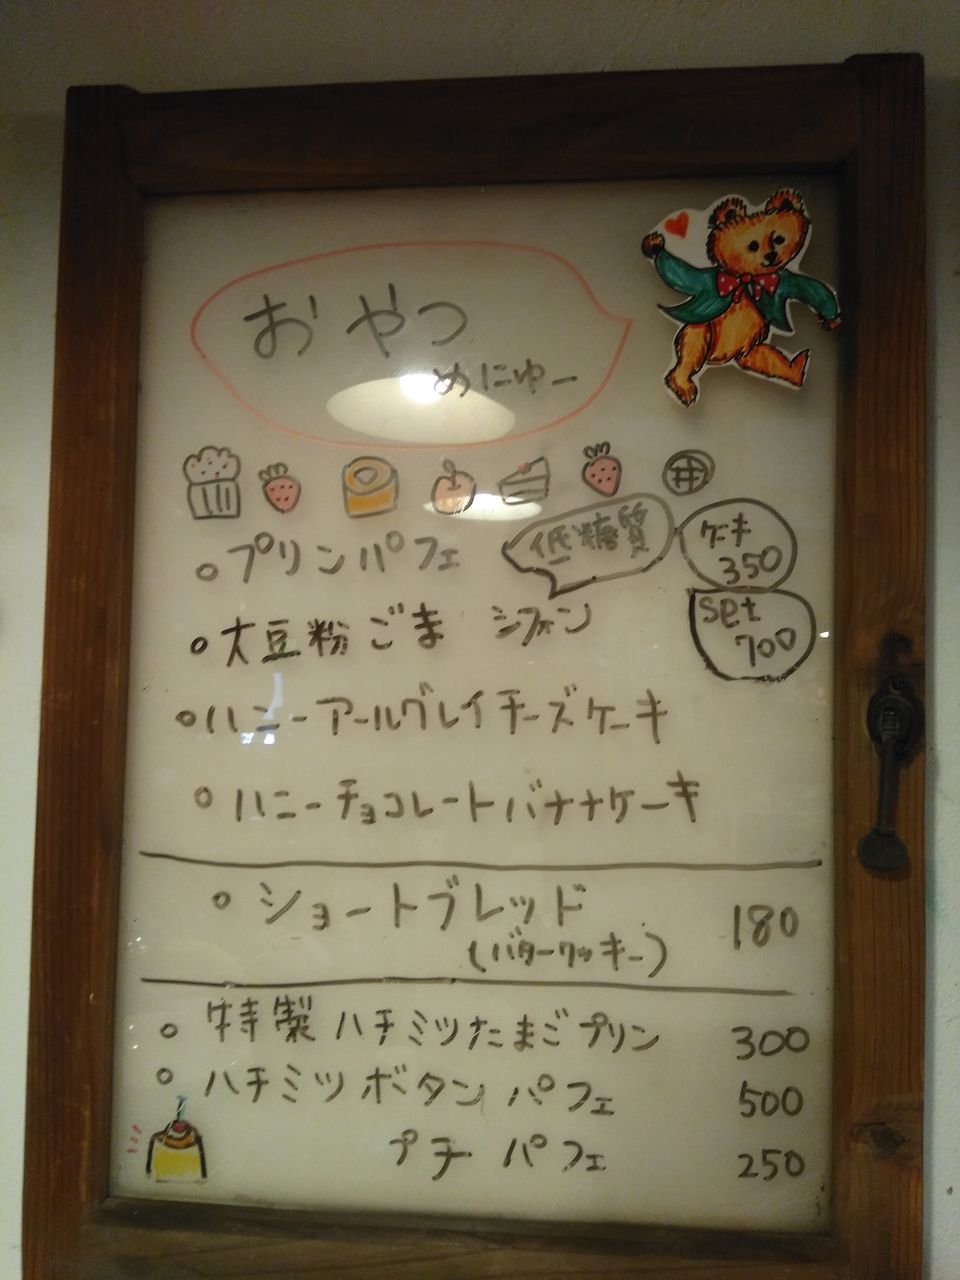 おやつ
めにゅー
プリンパフェ
低糖質
ケーキ
350
set
700
大豆粉ごま シフォン
ハニーアールグレイチーズケーキ
ハニーチョコレートバナナケーキ
ショートブレッド 180
(バタークッキー)
特製ハチミツたまごプリン 300
ハチミツボタン パフェ 500
プチ パフェ 250